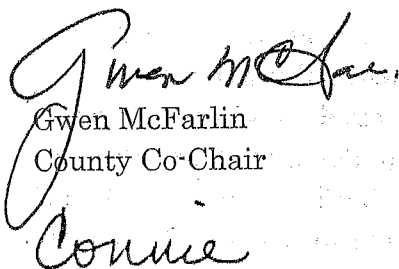 Gwen McFar
Gwen McFarlin
County Co-Chair
Connie